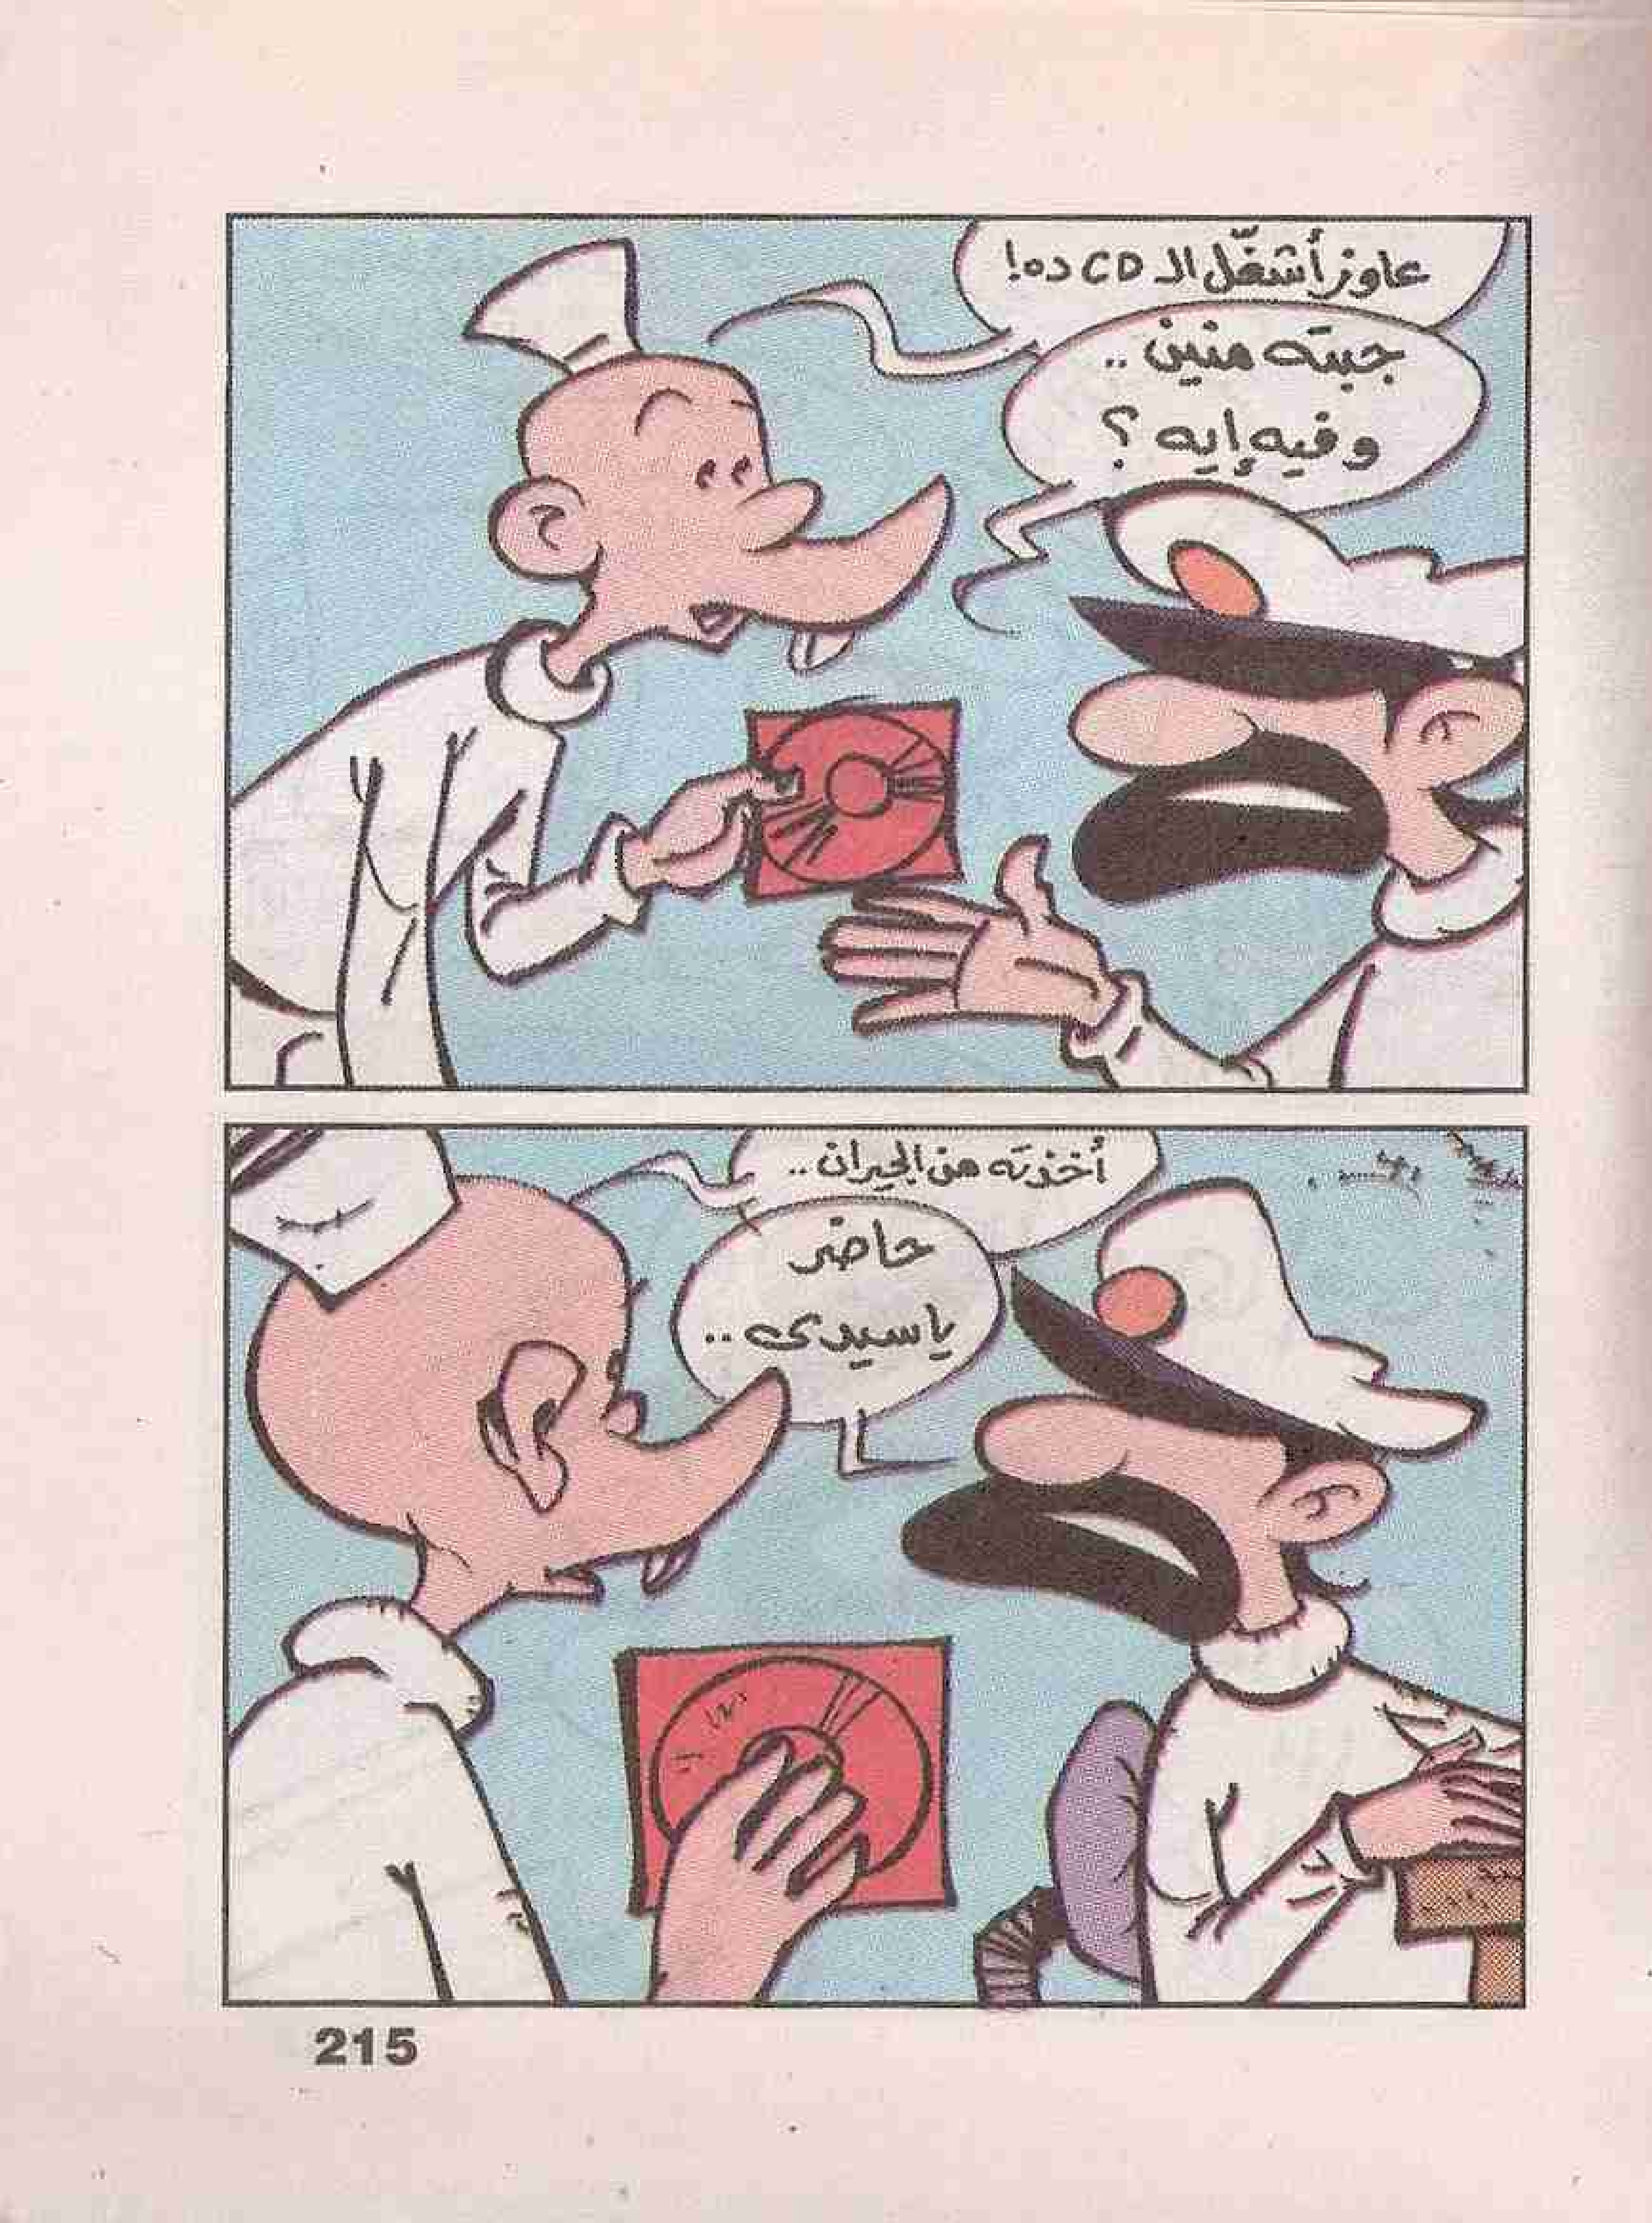 عاوز أشغّل الـ CD ده!
جبته منين ..
وفيه إيه ؟
أخذته من الجيران ..
حاضر
يا سيدى ..
215